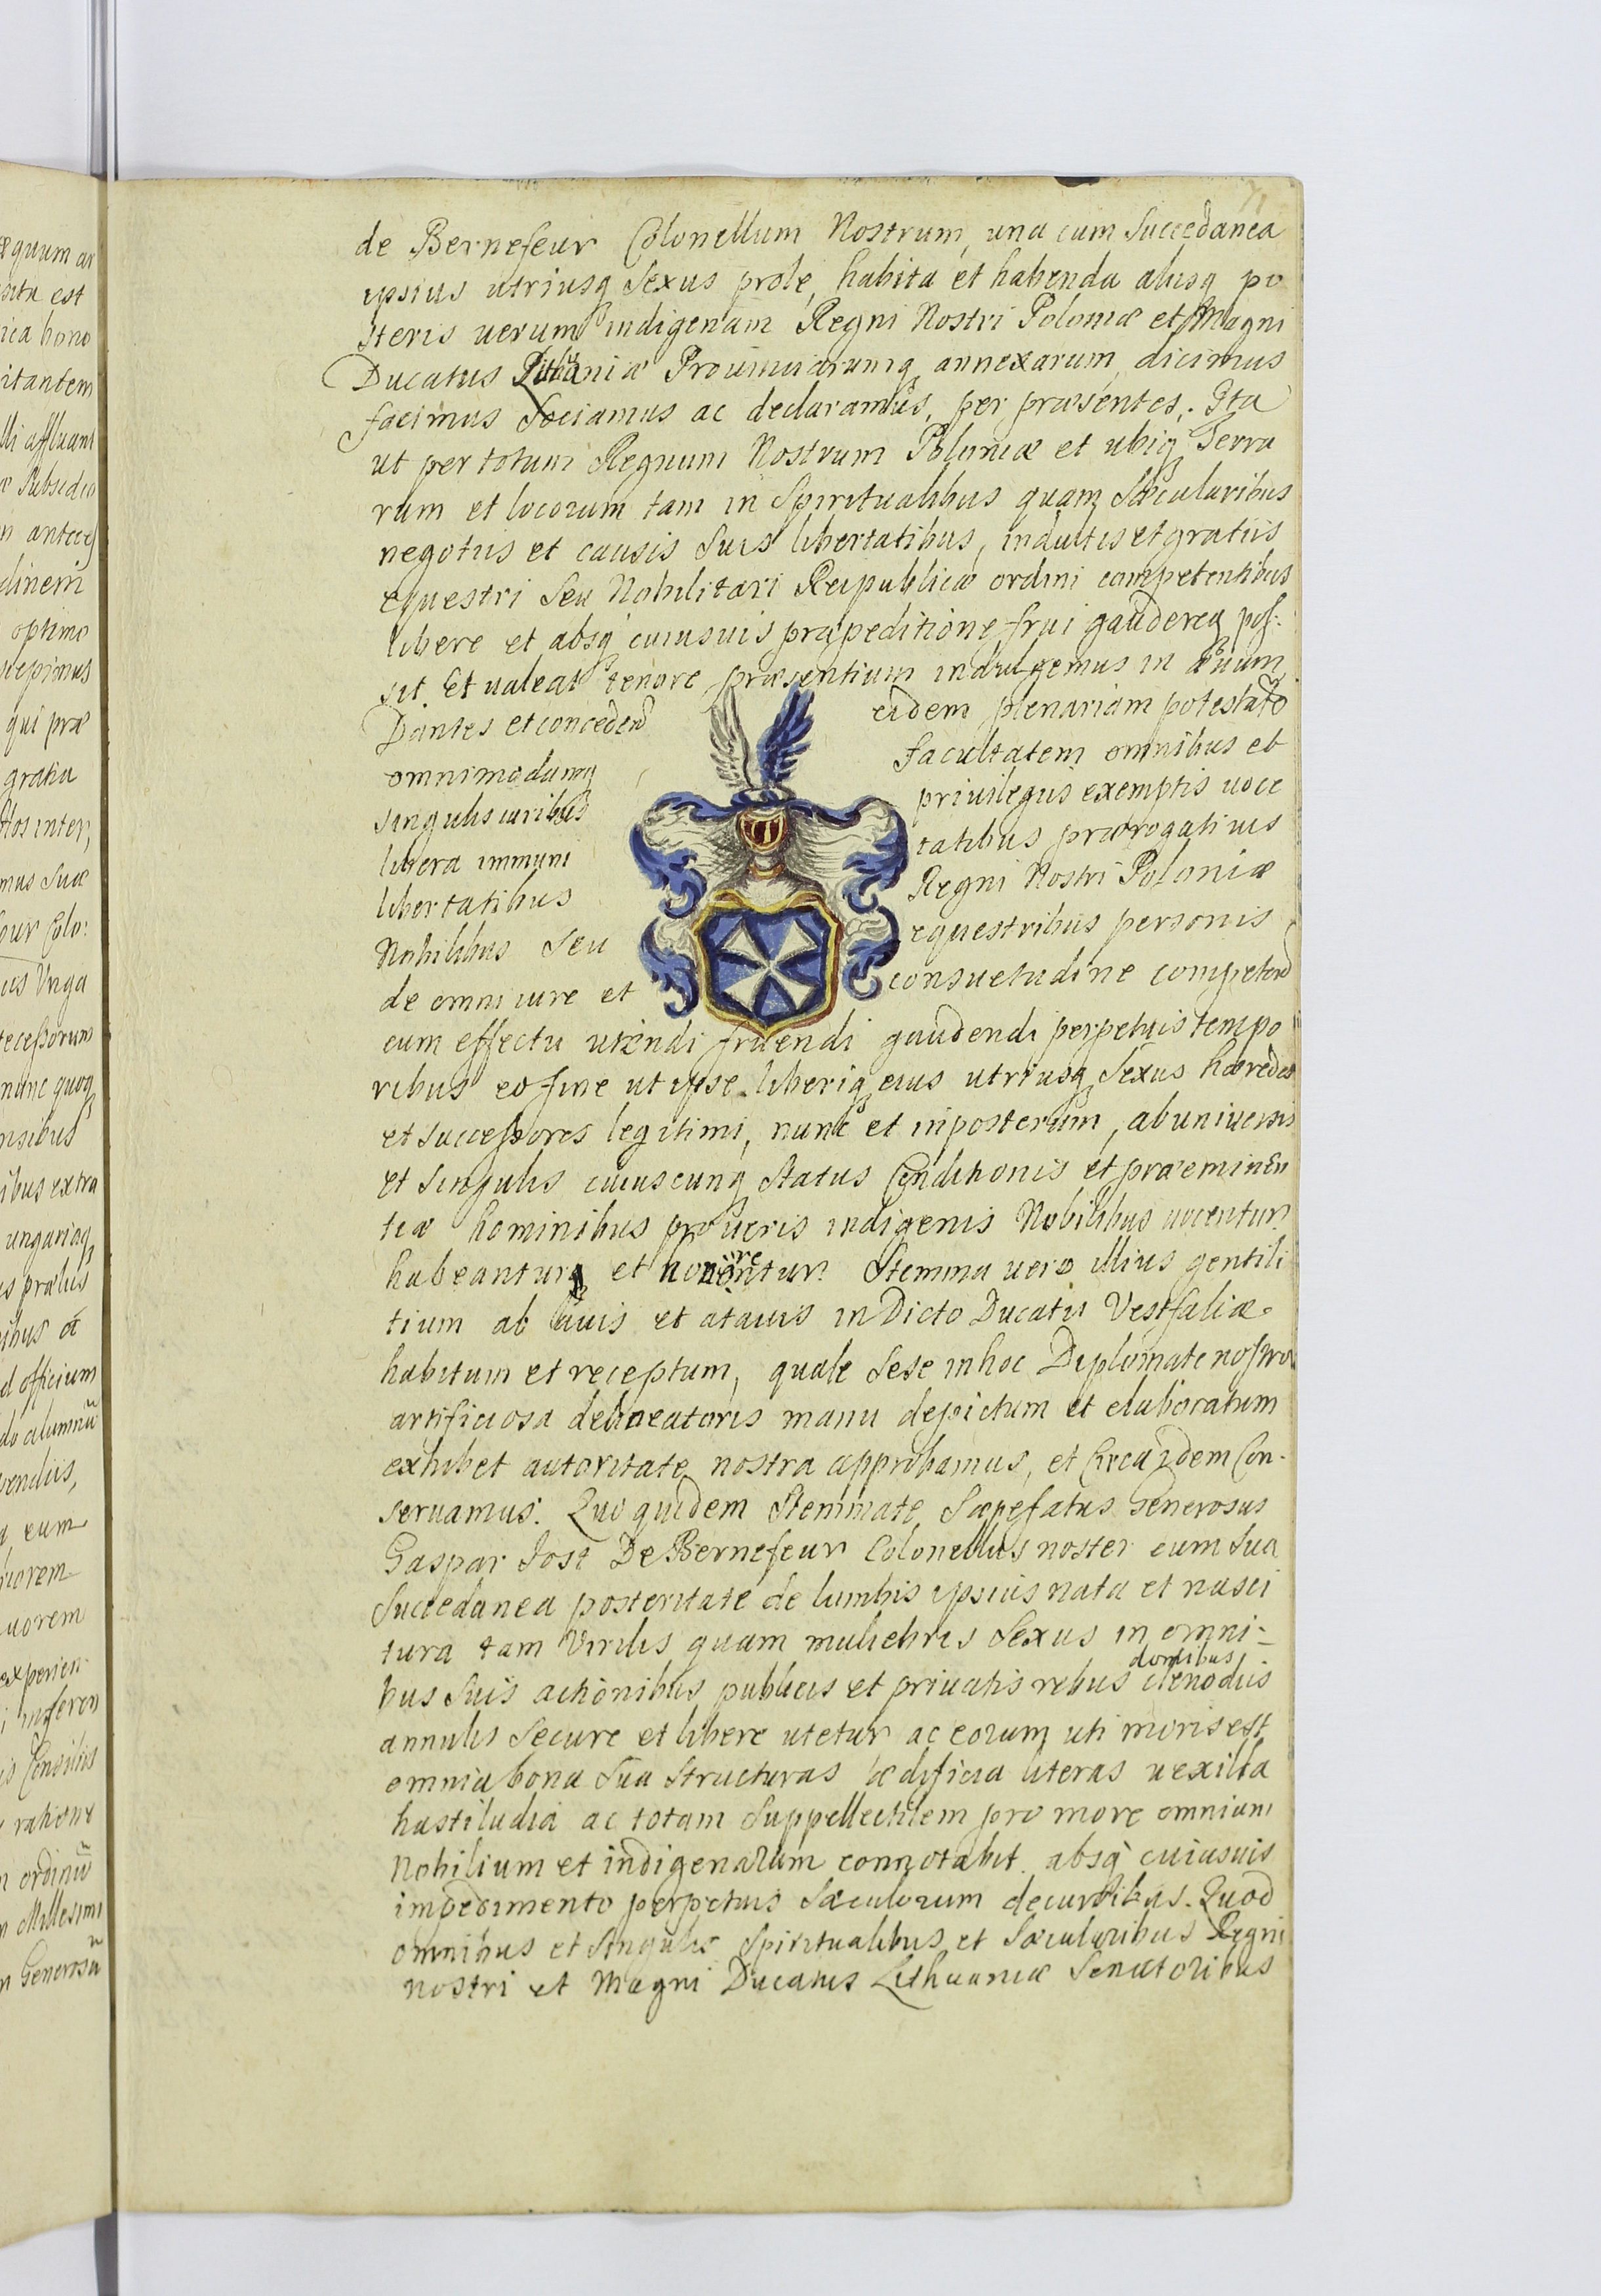 æquum ar
est
ica hono
itantem
lli affluant
Subsedio
n antece
dinem
optimo
scepimus
qui præ
gratia
Nos inter,
mus Suæ
Colo:
us Unga
tecessorum
nunc quoq
nsibus
ibus extra
ungariaq
s prælus
ribus
d officium
do alumnū
vendis,
eum
uorem
experien
inferen
Consilis
ratione
n ordinū
Millesimi
n Generosū
de Bernefeur Colonellum Nostrum, una cum Succedanea
ipsius utriusq Sexus prole, habita et habenda aliisq po
steris uerum indigenam Regni Nostri Poloniæ et Magni
Ducatus Lithuaniæ Prouinciarumq annexarum, dicimus
facimus Sociamus ac declaramus, per præsentes. Ita
ut per totum Regnum Nostrum Poloniæ et ubiq Terra
rum et locorum tam in Spiritualibus quam Sæcularibus
negotiis et causis Suis libertatibus, indultis et gratiis
equestri Seu Nobilitari Reipublicæ ordini competentibus
libere et absq cuiusuis præpeditione frui gaudereq pos:
sit. Et ualeat tenore præsentium indulgemus in æuum
Dantes et conceden eidem plenariam potestatē
omnimodamq facultatem omnibus et
singulis iuribus priuilegiis exemptis uoce
libera immuni tatibus prærogatiuis
libertatibus Regni Nostri Poloniæ
Nobilibus Seu equestribus personis
de omni iure et consuetudine competen
cum effectu utendi fruendi gaudendi perpetuis tempo
ribus eo fine ut ipse liberiq eius utriusq Sexus hæredes
et successores legitimi, nunc et inposterum, ab uniuersis
et Singulis cuiuscunq Status Conditionis et præeminen
tiæ hominibus pro ueris indigenis Nobilibus uocentur
habeantur et honorentur. Stemma uero illius gentili
tium ab auis et atauis in Dicto Ducatu Vestfaliæ
habitum et receptum, quale Sese in hoc Diplomate nostro
artificiosa delineatoris manu depictum et elaboratum
exhibet autoritate nostra approbamus, et Circa idem Con-
seruamus. Quo quidem Stemmate, Sæpefatus Generosus
Gaspar Jost De Bernefeur Colonellus noster cum Sua
Succedanea posteritate de lumbis ipsius nata et nasci
tura tam Virilis quam muliebris Sexus in omni-
bus Suis actionibus publicis et priuatis rebus domibus clenodiis
annulis Secure et libere utetur ac eorum uti moris est
omnia bona Sua Structuras ædificia literas uexilla
hastiludia ac totam Suppellectilem pro more omnium
Nobilium et indigenarum connotabit absq cuiusuis
impedimento perpetuis Sæculorum decursibus. Quod
omnibus et Singulis Spiritualibus et Sæcularibus Regni
nostri et Magni Ducatus Lithuaniæ Senatoribus